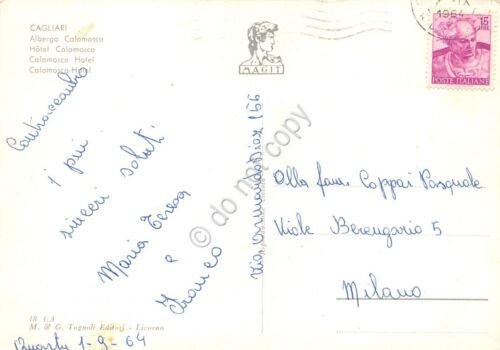 CAGLIARI
Albergo Calamosca
Hôtel Calamosca
Calamosca Hotel
Calamosca Hotel
MAGIT
1964
15
LIRE
POSTE ITALIANE
Contraccambio
i più
sinceri saluti
Maria Teresa
e
Franco
Via Armando Diaz 166
Alla fam. Coppai Pasquale
Viale Berengario 5
Milano
do not copy
18 CA
M. & G. Tognoli Editori - Livorno
Quartu 1-9-64